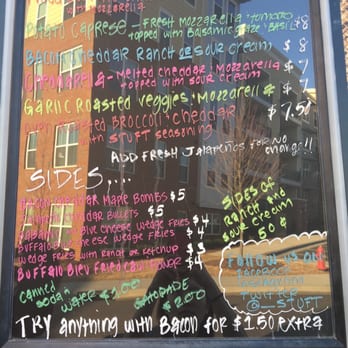 Mozzarella
Caprese - Fresh Mozzarella, tomato $8
topped with Balsamic Glaze Basil
Bacon Cheddar Ranch or Sour Cream $8
Melted Cheddar, Mozzarella $7
topped with Sour Cream
Garlic Roasted Veggies, Mozzarella $
Roasted Broccoli Cheddar $7.50
with STUFT Seasoning
Add Fresh Jalapeños for no
charge!!
SIDES....
Cheddar Maple Bombs $5
Cheddar Bullets $5
Blue Cheese Wedge Fries $4
Buffalo Blue Cheese Wedge Fries $4
Wedge Fries with Ranch or Ketchup $3
Buffalo Bleu Fried Cauliflower $4
Sides of
Ranch and
Sour Cream
50¢
Canned
Soda
Water $1.00
Gatorade
$2.00
Follow us on
Facebook
Instagram
Twitter
@_STUFT
Try anything with Bacon for $1.50 extra